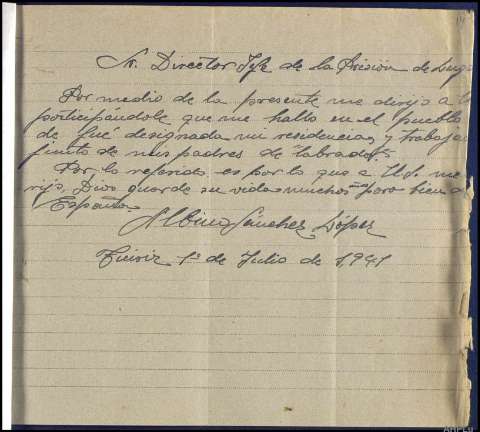 Sr. Director Jefe de la Prisión de Lugo
Por medio de la presente me dirijo a
participándole que me hallo en el pueblo
de fué designada mi residencia, y trabajan
junto de mis padres de labrador.
Por lo referido, es por lo que a Ud. me
rijo, Dios guarde su vida muchos para bien de
España.
Albino Sánchez López
1º de Julio de 1,941